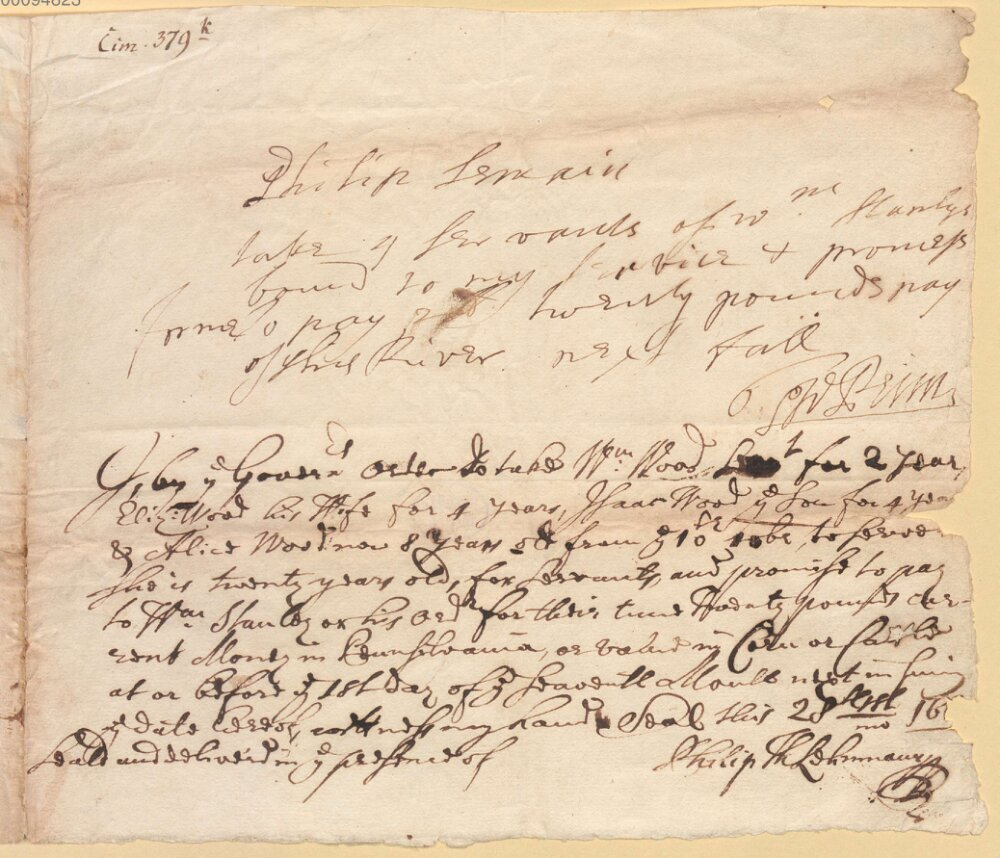 00094823
Cim. 379k
Philip Lemain
take ye servants of wm Stanlys
bound to my service & promess
to pay twenty pounds pay
of this River next fall
Wm Penn
I, by ye Govern:rs order do take Wm Wood for 2 years,
Eliz: Wood his Wife for 4 years, Isaac Wood ye Son for 4 year
& Alice Wood now 8 years old from ye 10br, to serve
she is twenty years old, for servants, and promise to pay
to Wm Stanley or his Ordr for their time twenty pounds cur-
rent Money in Pennsilvania, or value in Corn or Cattle
at or before ye 1st day of ye seaventh Month next insuing
ye date hereof, wittness my hand & Seal this 28 16
Seald and deliverd in ye presence of Philip Th Lehnmann